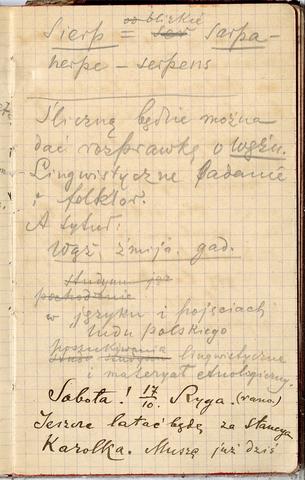 od blizkie
Sierp = sar sarpa-
herpe - serpens
Śliczną będzie można
dać rozprawkę o wężu.
Lingwistyczne badanie
i folklor.
A tytuł:
Wąż, żmija. gad.
studyum językoznawcze
pochodzenie
w języku i pojęciach
ludu polskiego
poszukiwania
studyum lingwistyczne
i materyał etnologiczny.
Sobota! 17/10. Ryga. (rano.)
Jeszcze latać będę za stancyą
Karolka. Muszę już dziś